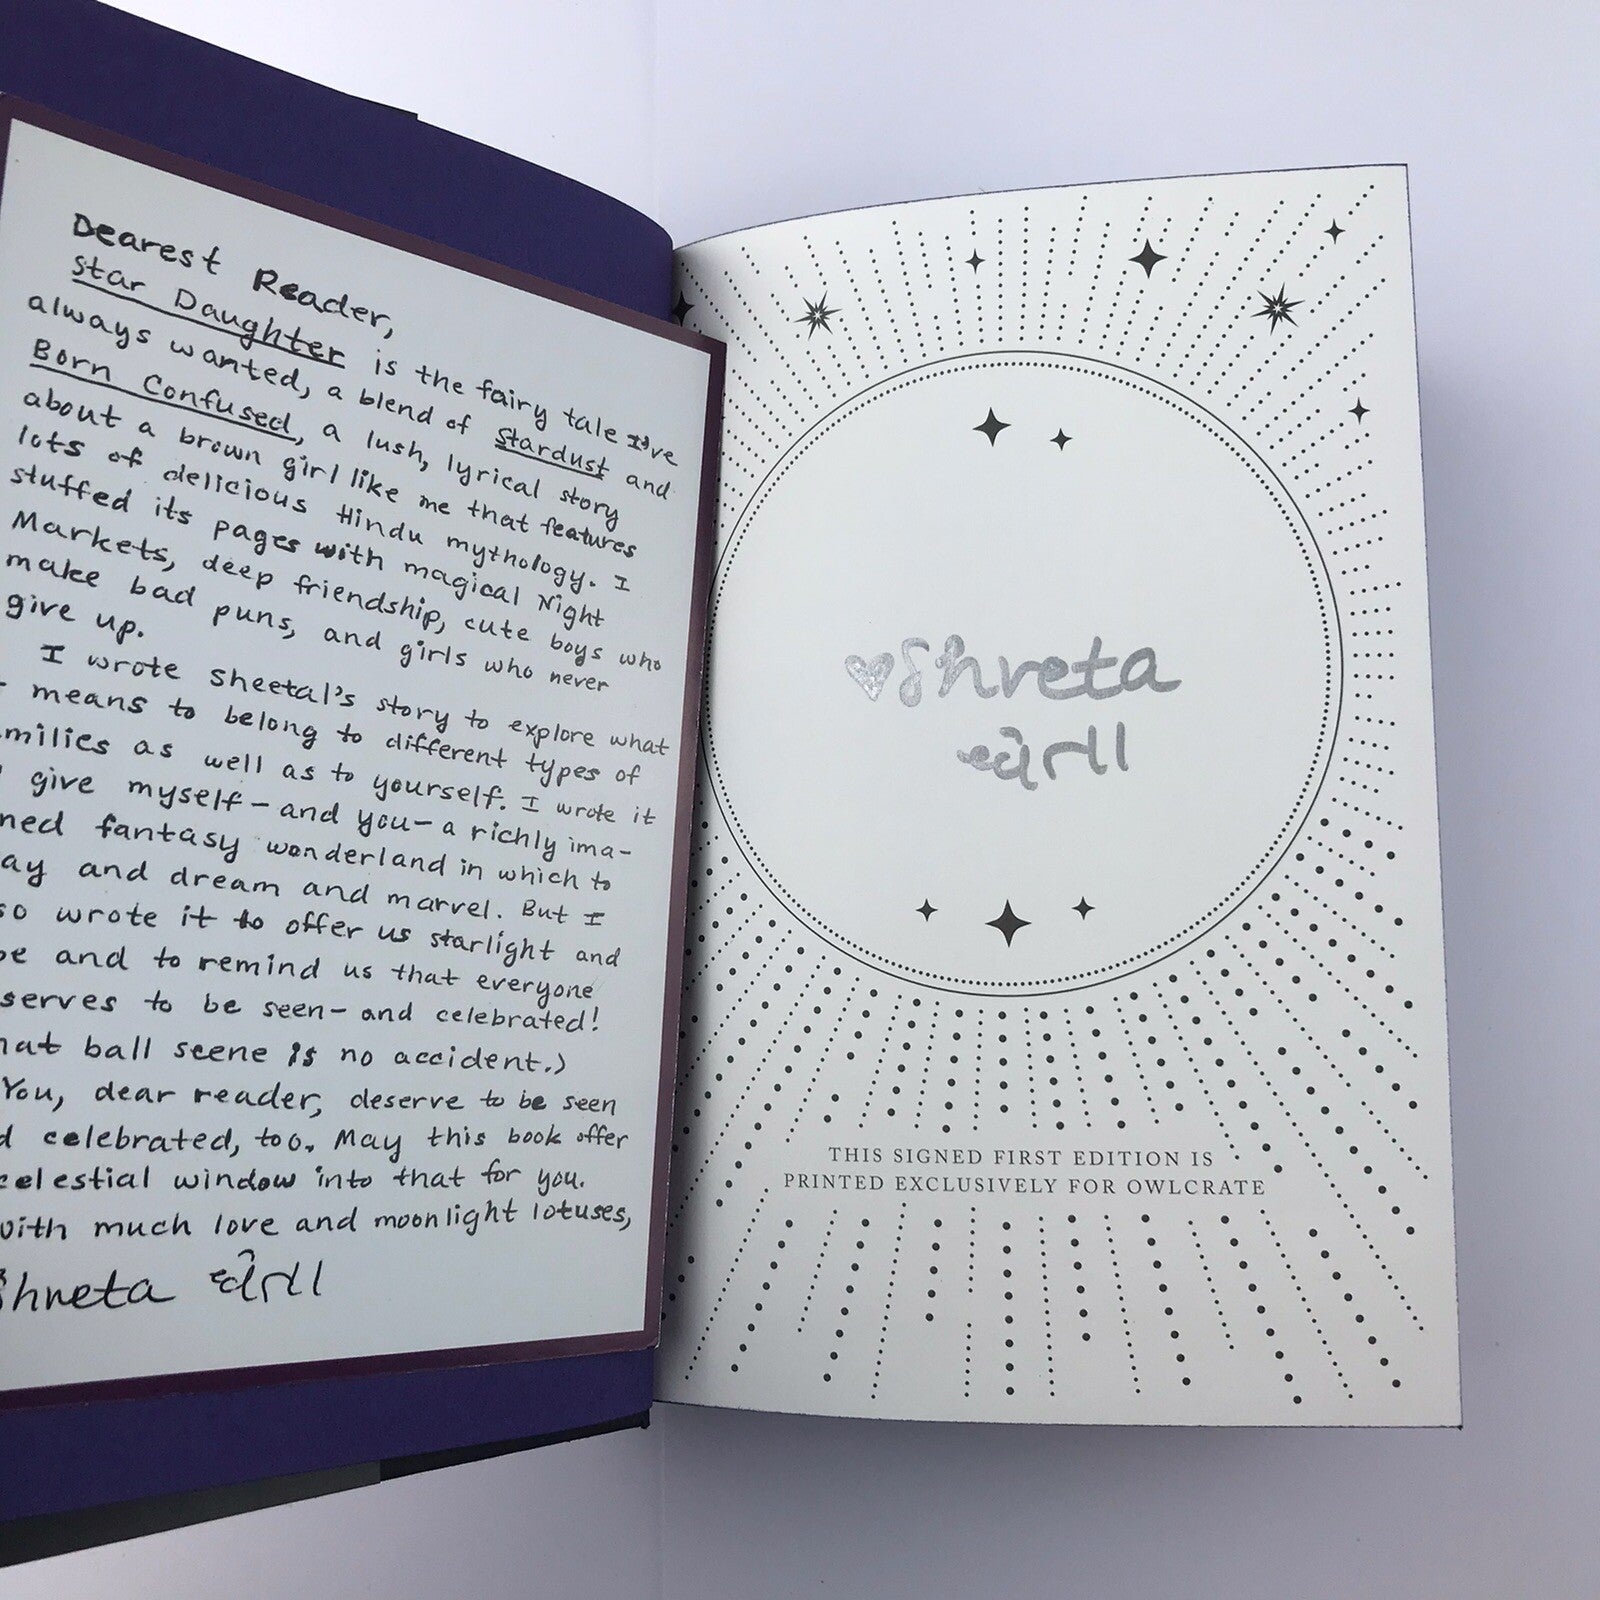 Dearest Reader,
Star Daughter is the fairy tale I've
always wanted, a blend of Stardust and
Born Confused, a lush, lyrical story
about a brown girl like me that features
lots of delicious Hindu mythology. I
stuffed its pages with magical Night
Markets, deep friendship, cute boys who
make bad puns, and girls who never
give up.
I wrote Sheetal's story to explore what
means to belong to different types of
milies as well as to yourself. I wrote it
give myself - and you - a richly ima-
ned fantasy wonderland in which to
ay and dream and marvel. But I
so wrote it to offer us starlight and
pe and to remind us that everyone
serves to be seen - and celebrated!
hat ball scene is no accident.)
You, dear reader, deserve to be seen
d celebrated, too. May this book offer
celestial window into that for you.
with much love and moonlight lotuses,
Shveta
♥Shveta
THIS SIGNED FIRST EDITION IS
PRINTED EXCLUSIVELY FOR OWLCRATE